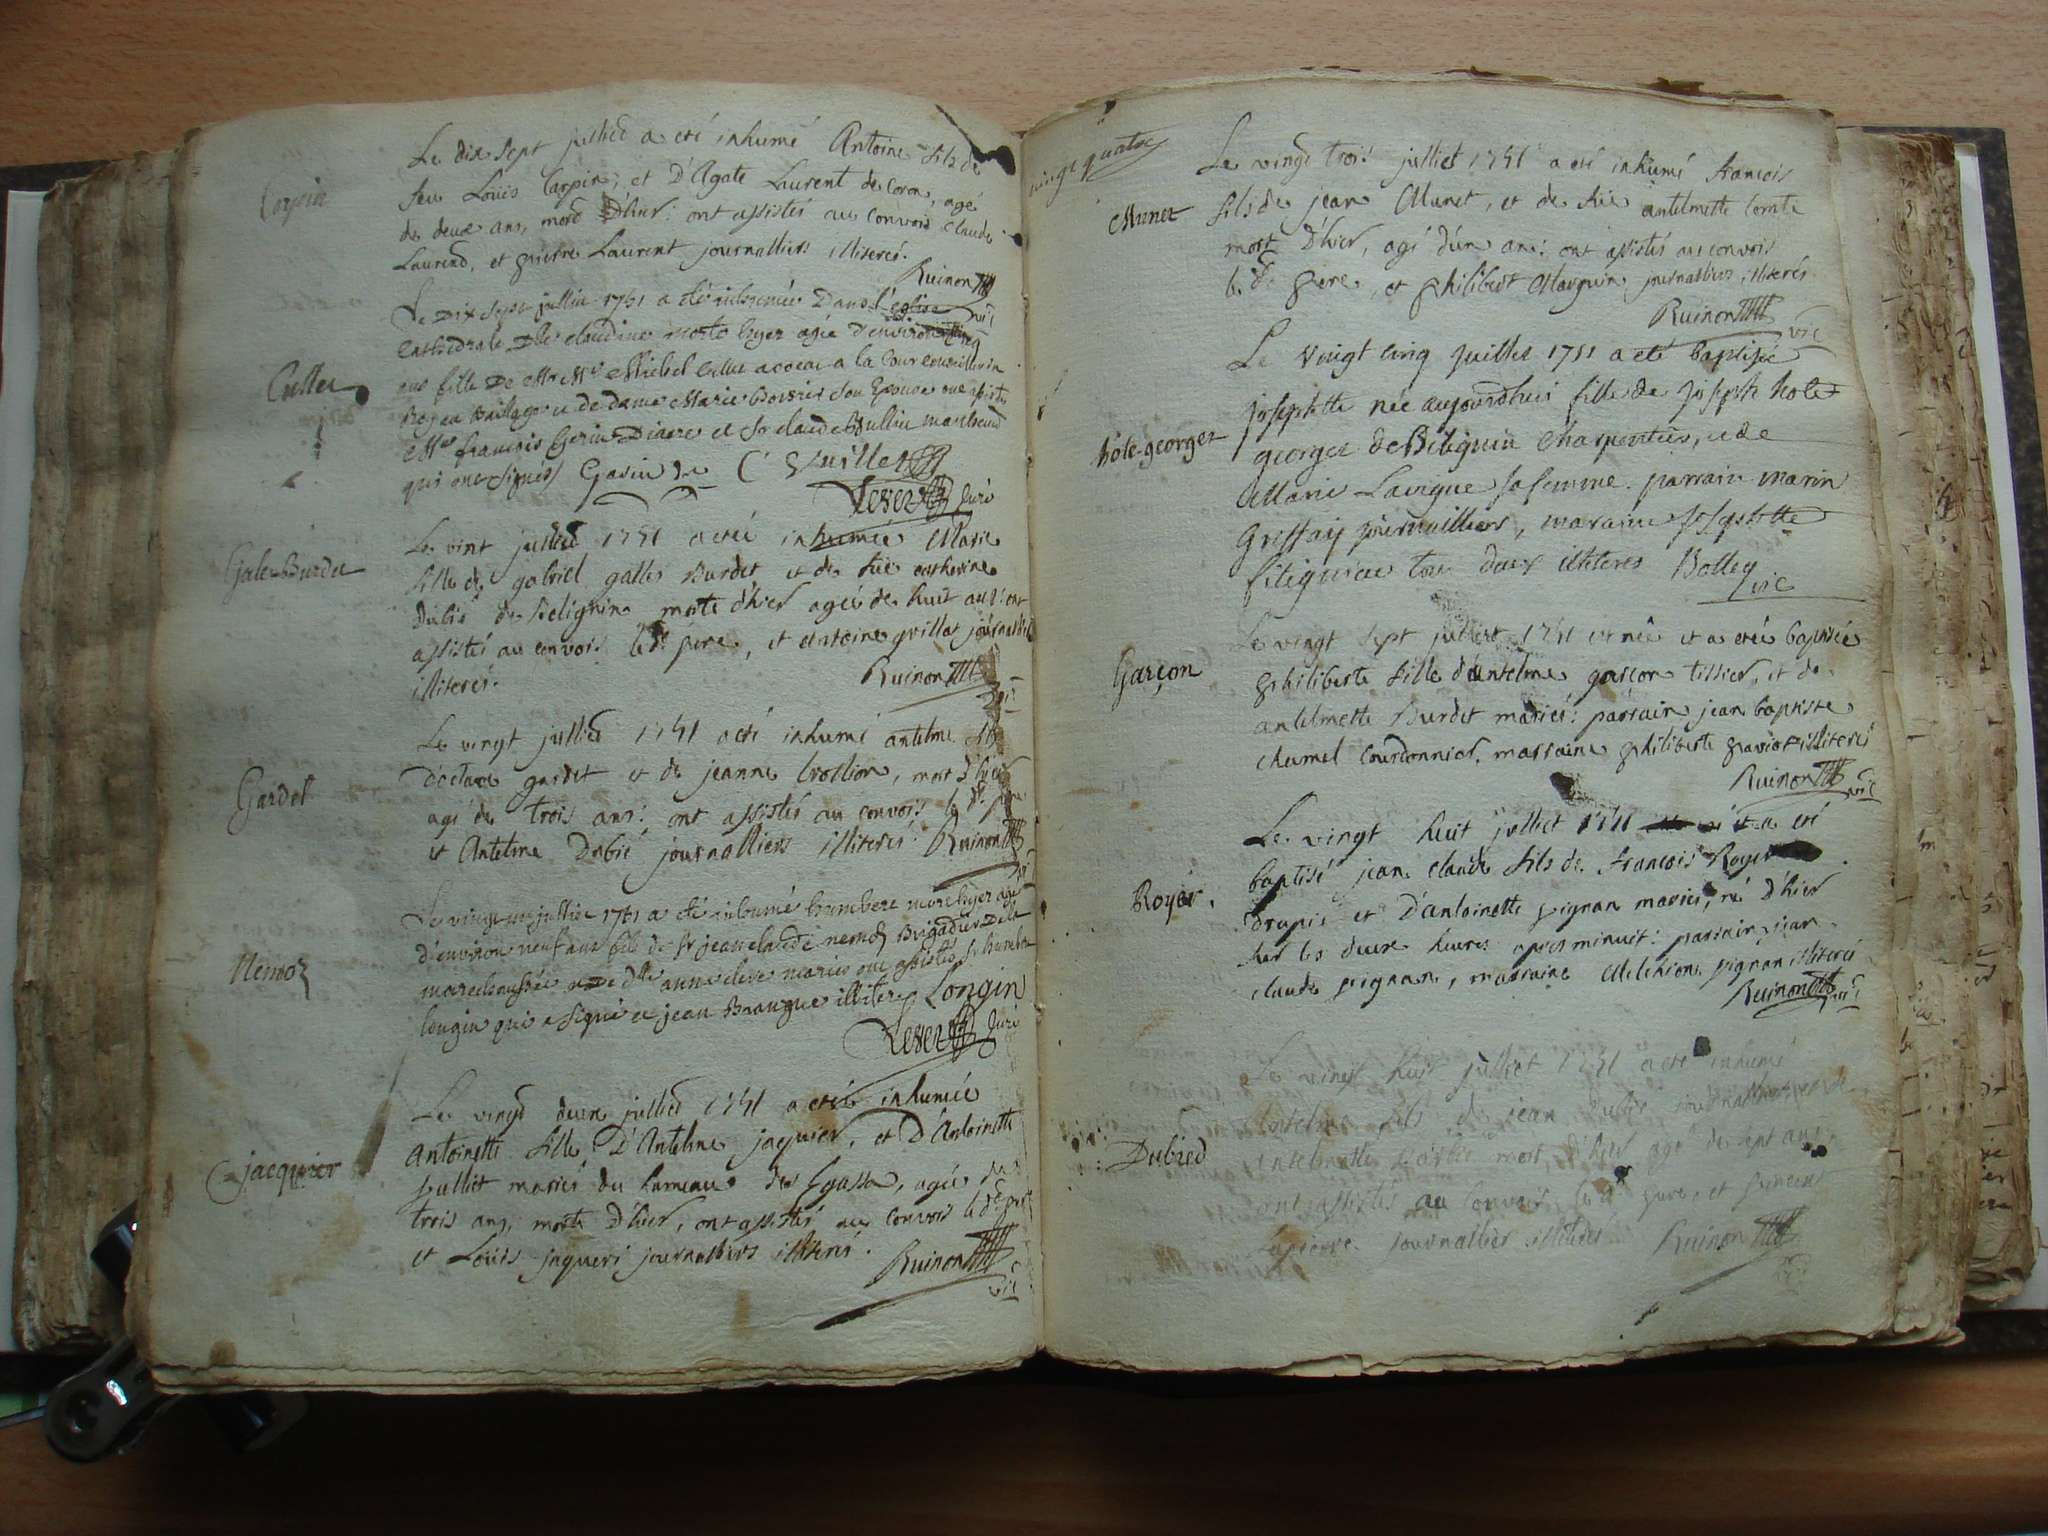 Carpin
Le dix sept julliet a eté inhumé Antoine fils de
feu Loüis Carpin, et D'Agate Laurent de Coron, agé
de deux ans, mord D'hier: ont assistés au convois Claude
Laurend, et pierre Laurent journalliers illiterés.
Ruinon vic
Cullet
Le Dix sept juillet 1751 a été inhumée Dans l'eglise
Cathedrale Dlle claudine morte hyer agée d'environ cinq
ans fille De Mre Michel Cullet avocat a la Cour conseiller
au Bailage et de dame Marie son Epouse ont assisté
francois Gerin Diacre et Sr claude Bullin marchand
qui ont Signés Gerin Dre C Guillet
Curé
Gale-Burdet
Le vint julliet 1751 a etée inhumée Marie
fille de gabriel galles Burdet et de catherine
Dubié de Beligniu morte d'hier agée de huit ans: ont
assistés au convois led. pere, et Antoine grillot journalliers
illiterés.
Ruinon vic
Gardet
Le vingt julliet 1751 a eté inhumé antelme fils
d'octave gardet et de jeanne, mort d'hier
agé de trois ans: ont assistés au convois le dt. pere
et Antelme Dubié journalliers illiterés. Ruinon vic
Nemoz
Le vingt un juillet 1751 a été inhumé humbert mort hyer agé
d'environ neuf ans fils de Sr jean claude nemoz Brigadier De la
marechaussée et De dlle anne mariés ont assistés Sr humbert
longin qui a Signé et jean illiteré Longin
Curé
jacquier
Le vingd deux julliet 1751 a etée inhumée
Antoinette fille D'Antelme jaquier, et d'Antoinette
julliet mariés du hameau des Ecassa, agée de
trois ans, morte D'hier, ont assistés au convois le dt pere
et Loüis journalliers illiterés. Ruinon vic
vingt quatre
Munet
Le vingt trois julliet 1751 a eté inhumé francois
fils de jean Munet, et de antelmette Comte
mort D'hier, agé d'un an: ont assistés au convois
le dt pere, et philibert Marguin journalliers illiterés.
Ruinon vic
hôte-georges
Le Vingt cinq juillet 1751 a eté baptisée
josephette née aujourdhui fille de joseph hote
georges de Beligniu Charpentier, et de
Marie Lavigne sa femme. parrain marin
Griffay journailliers, maraine josephette
tous deux illiteres Bolley
vic
Garçon
Le vingt sept julliet 1751 est née et a etée baptisée
philiberte fille d'antelme garçon tissier, et de
antelmette Burdet mariés: parrain jean baptiste
chamel Courdonnier, marraine philiberte illiterés
Ruinon vic
Royer.
Le vingt huit julliet 1751 et a eté
baptisé jean claude fils de françois Royer
drapié et D'antoinette pignan mariés, né d'hier
sur les deux heures apres minuit: parrain jean
claude pignan, marraine Melchione pignan illiterés
Ruinon vic
Dubied
Le vingt huit julliet 1751 a eté inhumé
antelme fils de jean dubié journallier, et de
antelmette mort d'hier agé de sept ans
ont assistés au convois le dt pere, et
lapierre journallier illiterés Ruinon